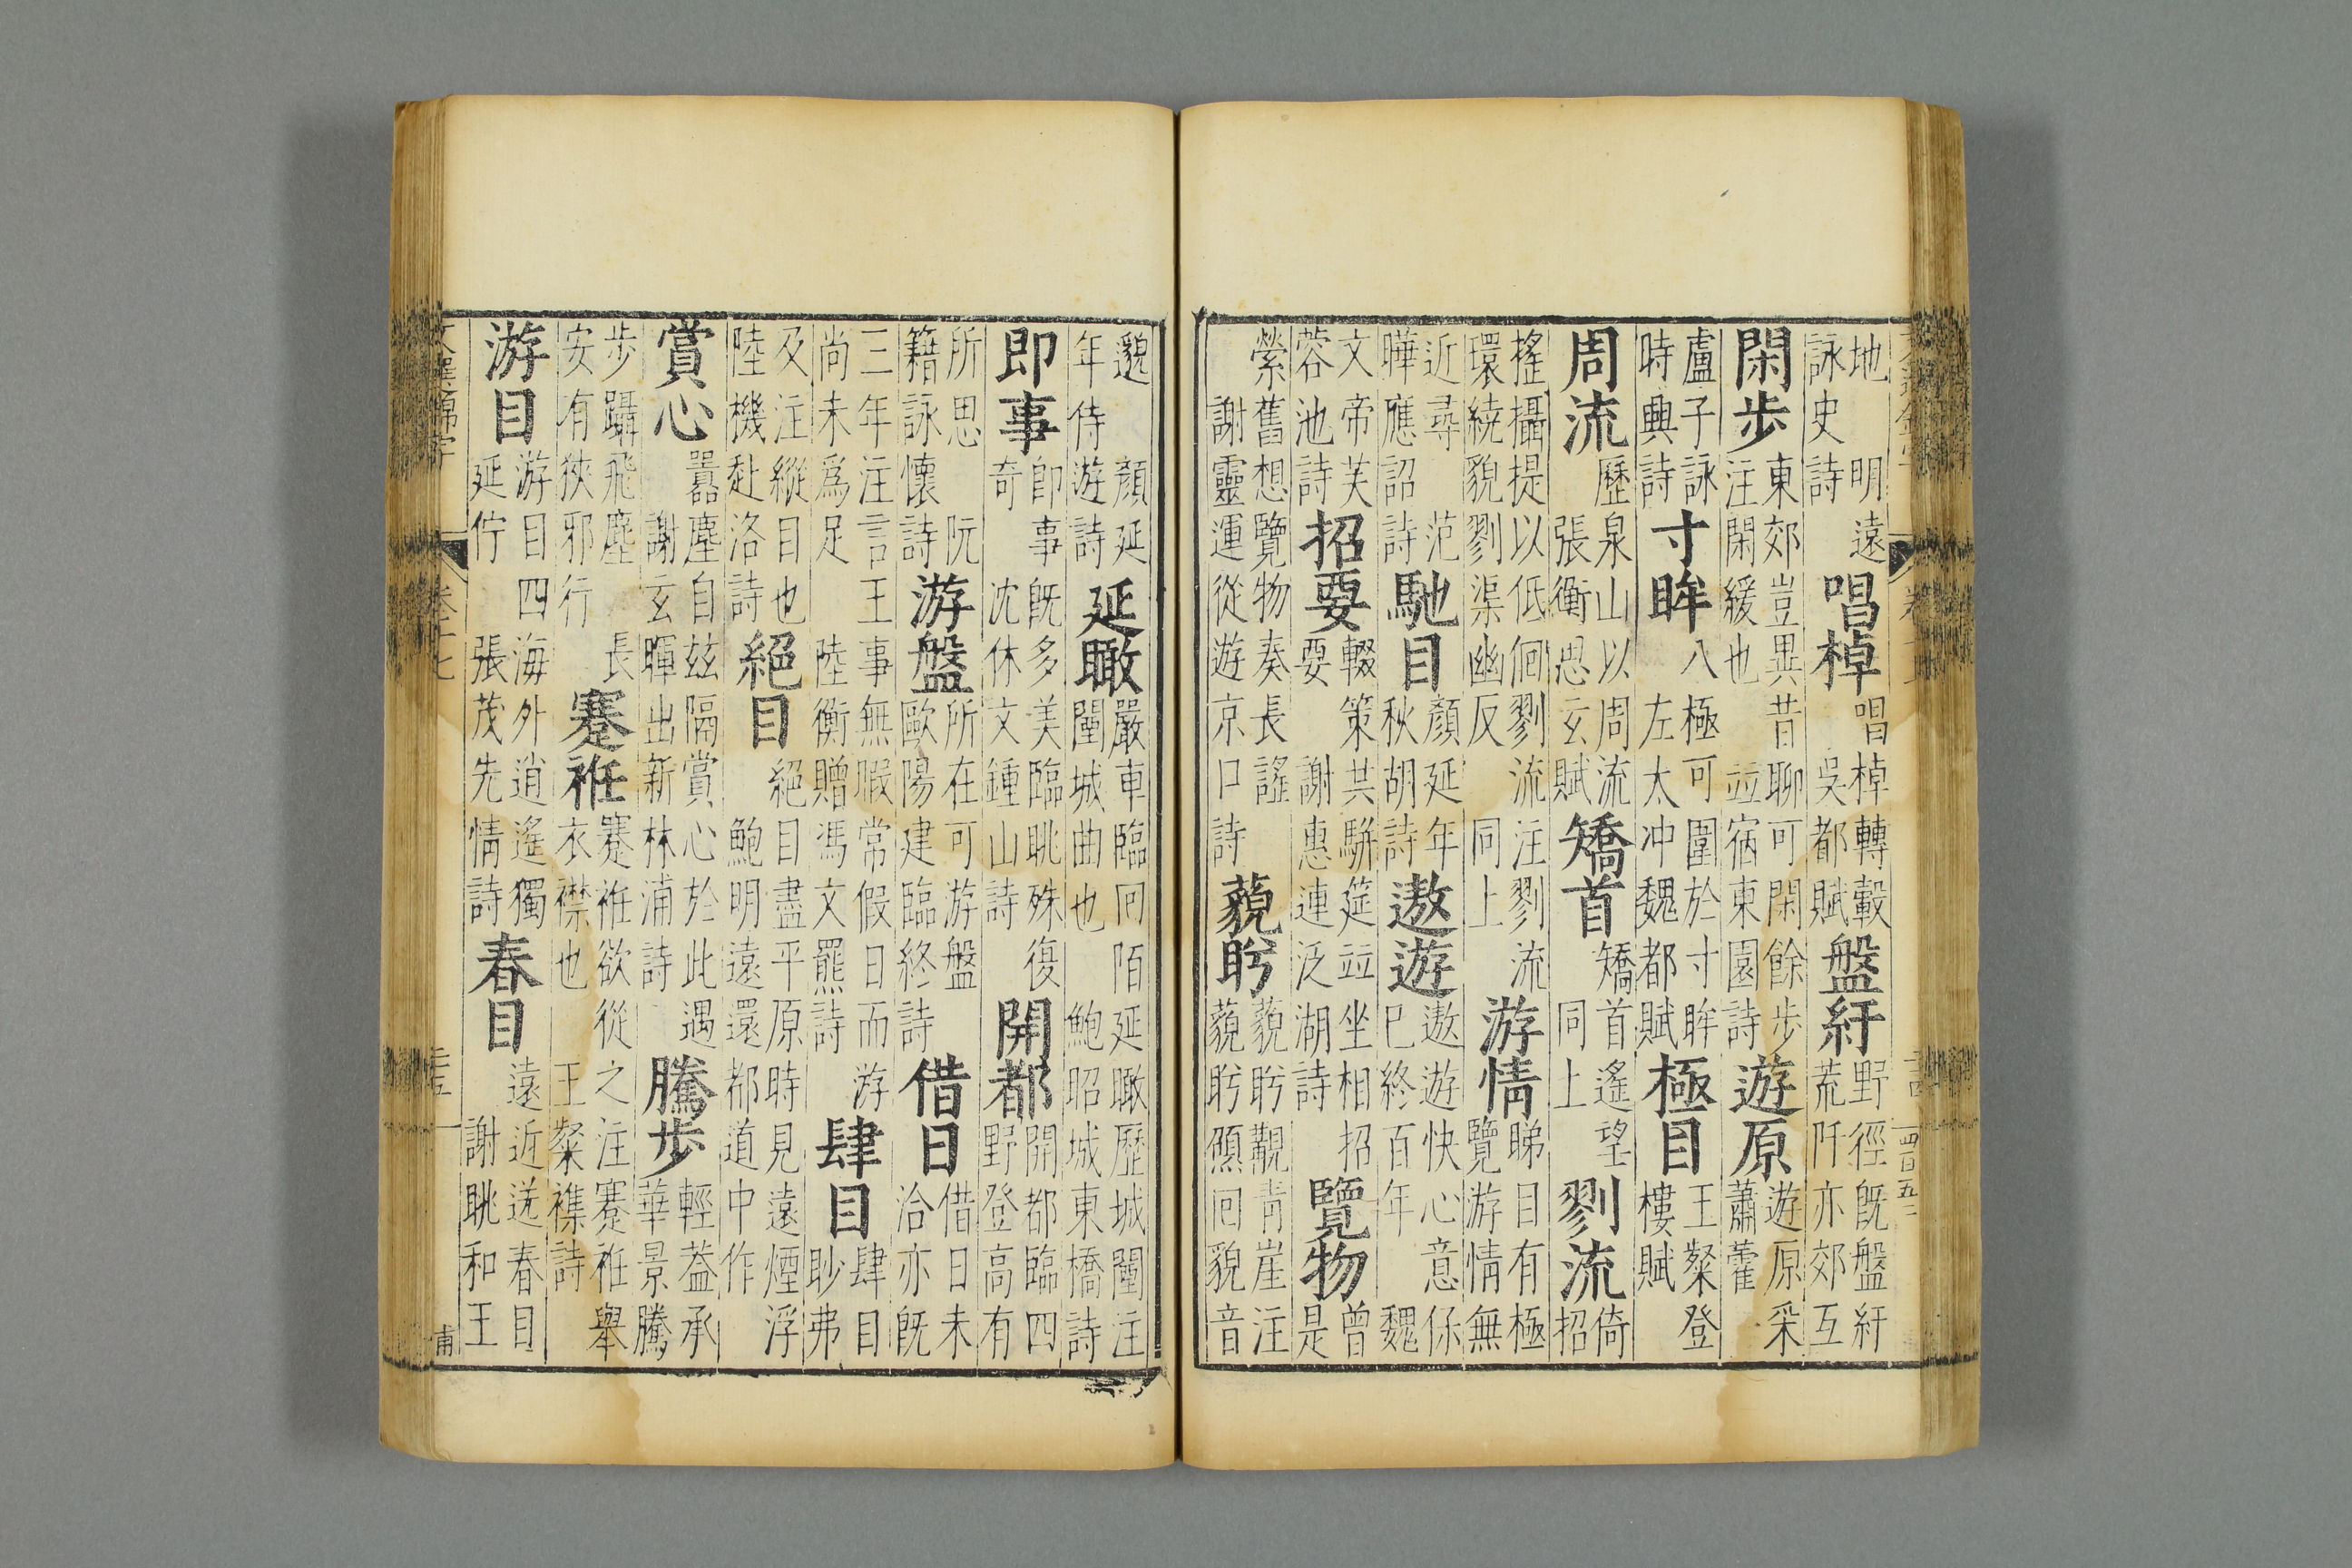 地 明遠詠史詩 唱棹 唱棹轉轂 吳都賦 盤紆 野徑既盤紆荒阡亦郊互
閑步 東郊豈異昔聊可閑餘步注閑緩也 竝宿東園詩 遊原 遊原采蕭藿
盧子詠時興詩 寸眸 八極可圍於寸眸 左太冲魏都賦 極目 王粲登樓賦
周流 歷泉山以周流 張衡思玄賦 矯首 矯首遙望 同上 剹流 倚招
搖攝提以低佪剹流注剹流環繞貌剹渠幽反 同上 游情 睇目有極覽游情無
近尋 范曄應詔詩 馳目 顏延年秋胡詩 遨遊 遨遊快心意保已終百年 魏
文帝芙蓉池詩 招要 輟策共駢筵竝坐相招要 謝惠連泛湖詩 覽物 曾是
縈舊想覽物奏長謠 謝靈運從遊京口詩 藐盻 藐盻覯青崖注藐盻傾回貌音
邈 顏延年侍遊詩 延瞰 嚴車臨回陌延瞰歷城闉注闉城曲也 鮑昭城東橋詩
即事 即事既多美臨眺殊復奇 沈休文鍾山詩 開都 開都臨四野登高有
所思 阮籍詠懷詩 游盤 所在可游盤 歐陽建臨終詩 借日 借日未洽亦既
三年注言王事無暇常假日而游尚未爲足 陸衡贈馮文羆詩 肆目 肆目眇弗
及注縱目也 陸機赴洛詩 絕目 絕目盡平原時見遠煙浮 鮑明遠還都道中作
賞心 囂塵自玆隔賞心於此遇 謝玄暉出新林浦詩 騰步 輕蓋承華景騰
步躡飛塵 長安有狹邪行 蹇袵 蹇袵欲從之注蹇袵舉衣襟也 王粲襍詩
游目 游目四海外逍遙獨延佇 張茂先情詩 春目 遠近送春目 謝眺和王
甫